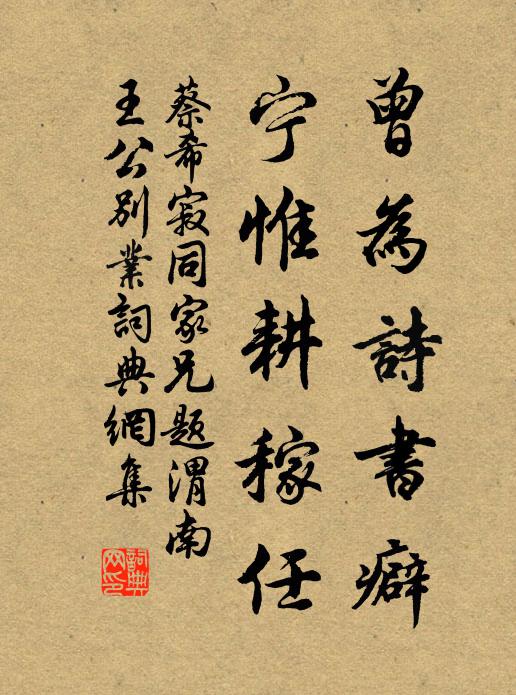 曾為詩書癖
宁惟耕稼任
蔡希寂同家兄题渭南
王公別業詞典網集
詞典
网印